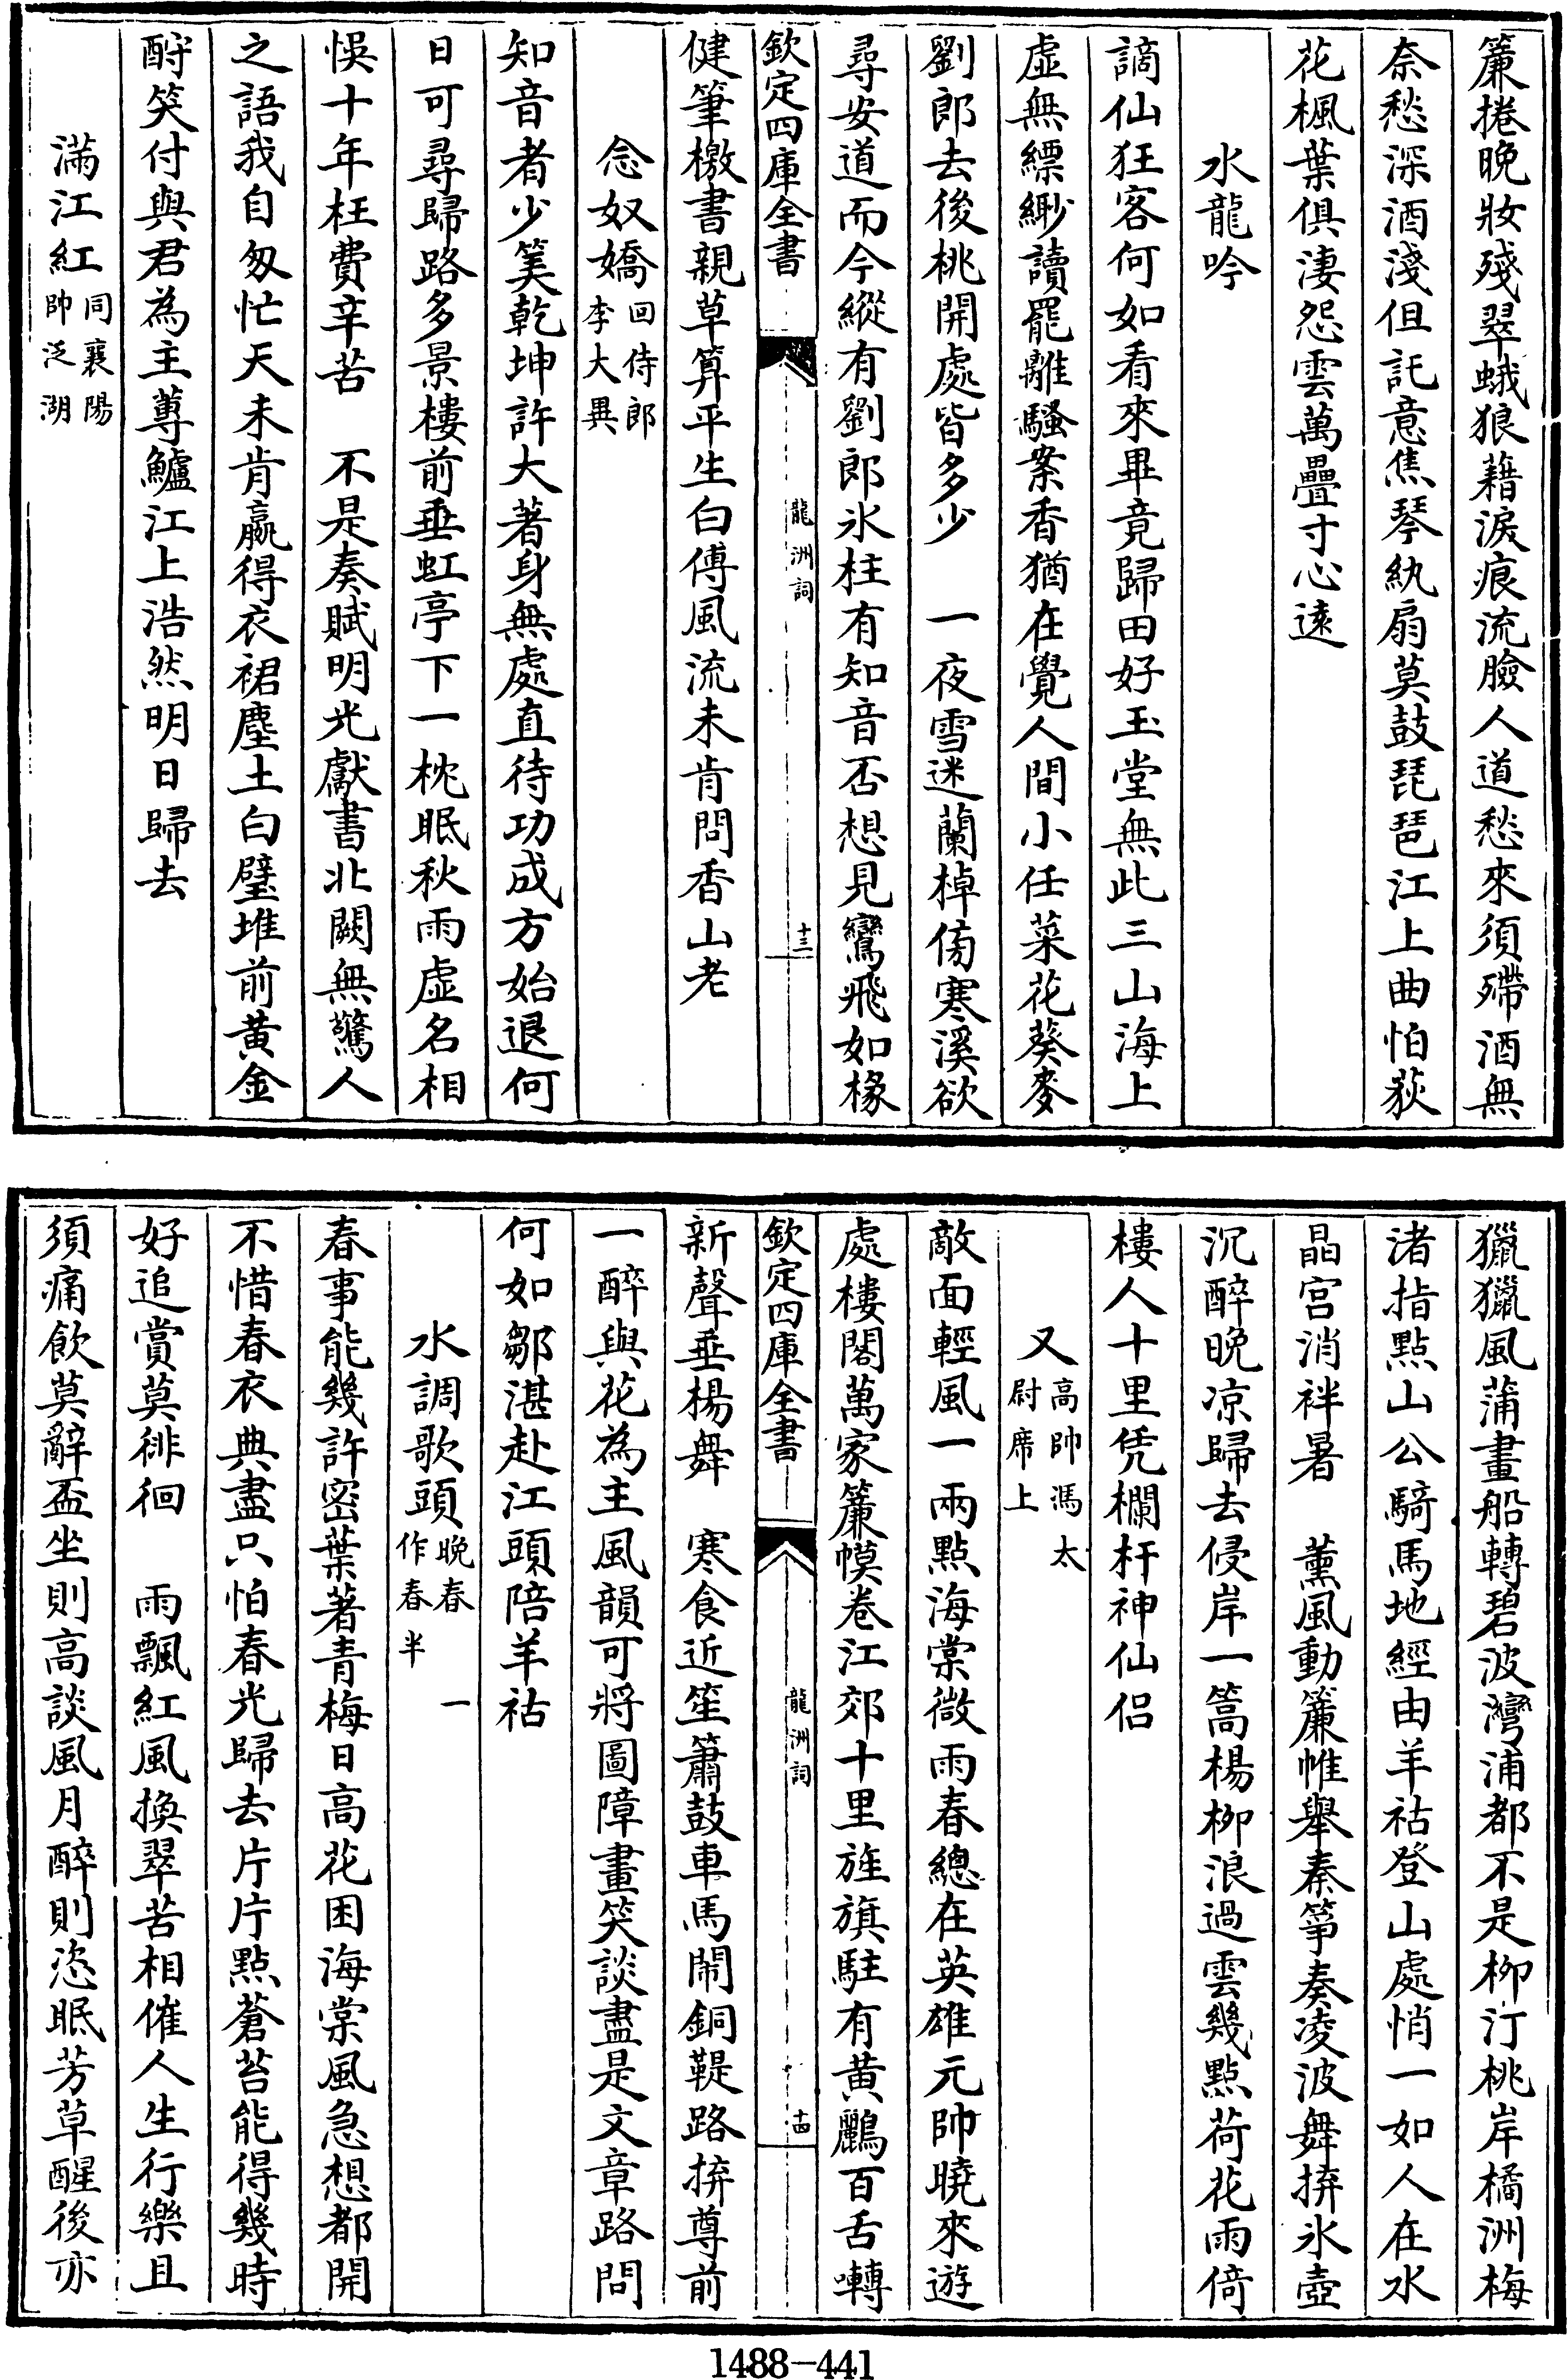 簾捲晚妝殘翠蛾狼藉淚痕流臉人道愁來須殢酒無
奈愁深酒淺但託意焦琴紈扇莫鼓琵琶江上曲怕荻
花楓葉俱淒怨雲萬疊寸心遠
水龍吟
謫仙狂客何如看來畢竟歸田好玉堂無此三山海上
虛無縹緲讀罷離騷案香猶在覺人間小任菜花葵麥
劉郎去後桃開處皆多少　一夜雪迷蘭棹傍寒溪欲
尋安道而今縱有劉郎氷柱有知音否想見鸞飛如椽
欽定四庫全書
龍洲詞
十三
健筆檄書親草算平生白傅風流未肯問香山老
念奴嬌回侍郎李大異
知音者少筭乾坤許大著身無處直待功成方始退何
日可尋歸路多景樓前垂虹亭下一枕眠秋雨虛名相
悞十年枉費辛苦　不是奏賦明光獻書北闕無驚人
之語我自匆忙天未肯贏得衣裾塵土白璧堆前黄金
酹笑付與君為主蓴鱸江上浩然明日歸去
滿江紅同襄陽帥泛湖
獵獵風蒲畫船轉碧波灣浦都不是柳汀桃岸橘洲梅
渚指點山公騎馬地經由羊祜登山處悄一如人在水
晶宫消袢暑　薰風動簾帷舉秦箏奏凌波舞拚氷壺
沉醉晚凉歸去侵岸一篙楊柳浪過雲幾點荷花雨倚
樓人十里凭欄杆神仙侣
又高帥馮太尉席上
敵面輕風一兩點海棠微雨春總在英雄元帥曉來遊
處樓閣萬家簾幙卷江郊十里旌旗駐有黄鸝百舌囀
欽定四庫全書
龍洲詞
十四
新聲垂楊舞　寒食近笙簫鼓車馬鬧銅鞮路拚尊前
一醉與花為主風韻可將圖障畫笑談盡是文章路問
何如鄒湛赴江頭陪羊祜
水調歌頭晚春一作春半
春事能幾許密葉著青梅日高花困海棠風急想都開
不惜春衣典盡只怕春光歸去片片點蒼苔能得幾時
好追賞莫徘徊　雨飄紅風換翠苦相催人生行樂且
須痛飲莫辭盃坐則高談風月醉則恣眠芳草醒後亦
1488-441